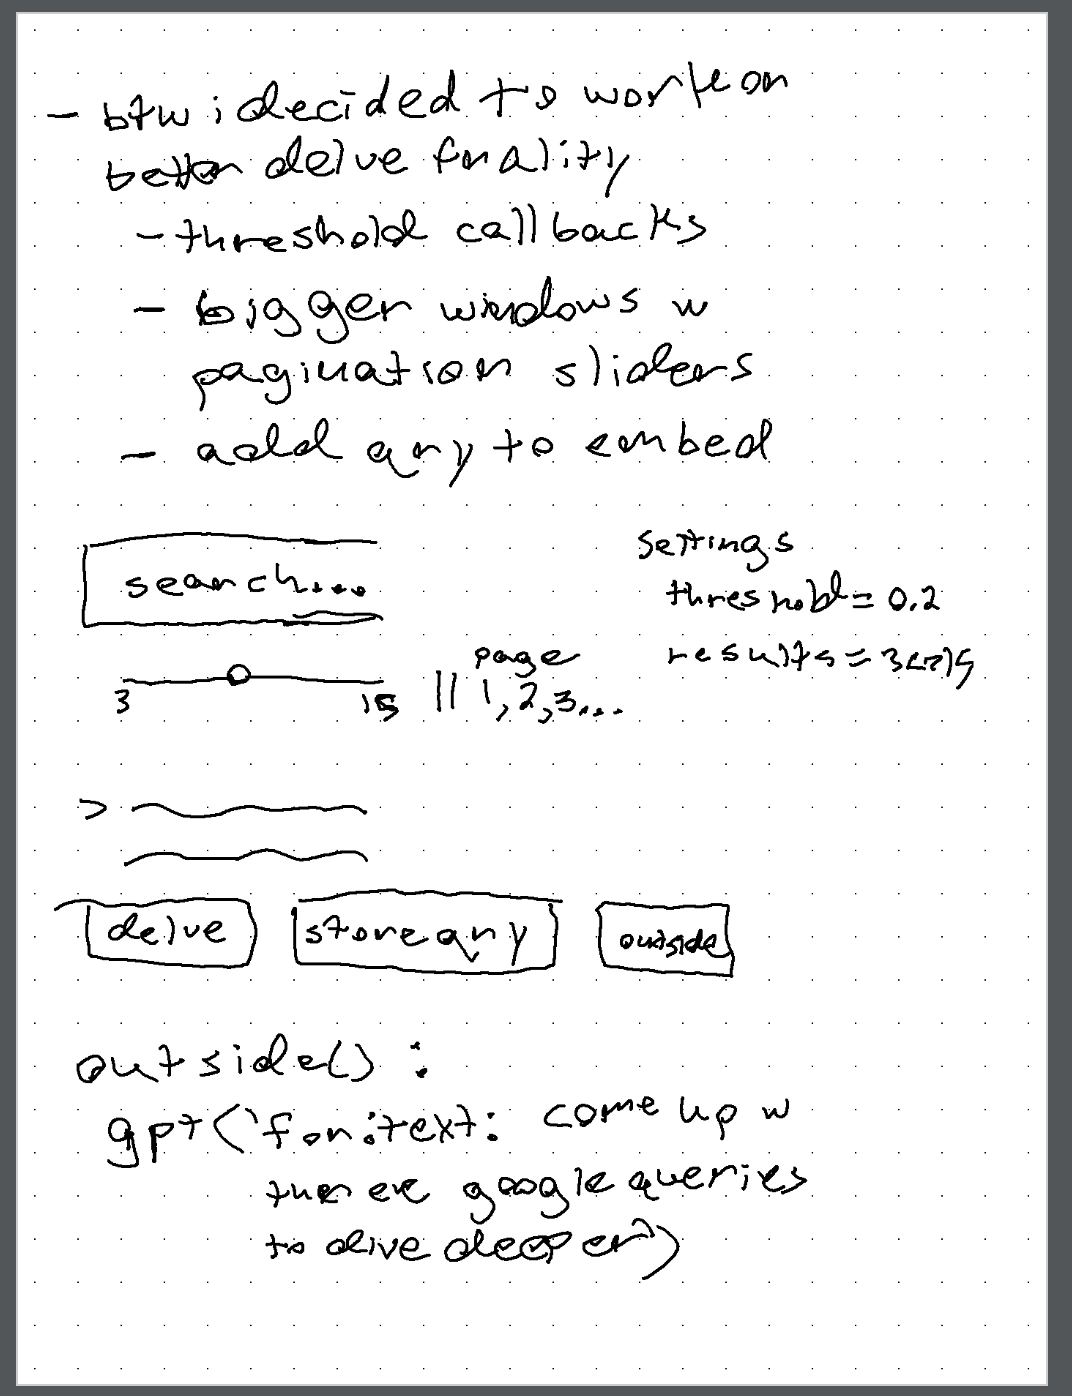 - btw i decided to work on
better delve fnality
- threshold callbacks
- bigger windows w
pagination sliders
- add qry to embed
search...
3 15 || page 1, 2, 3...
settings
threshold = 0.2
results = 3<->15
>
delve store qry outside
outside():
gpt("for:text: come up w
three google queries
to dive deeper")